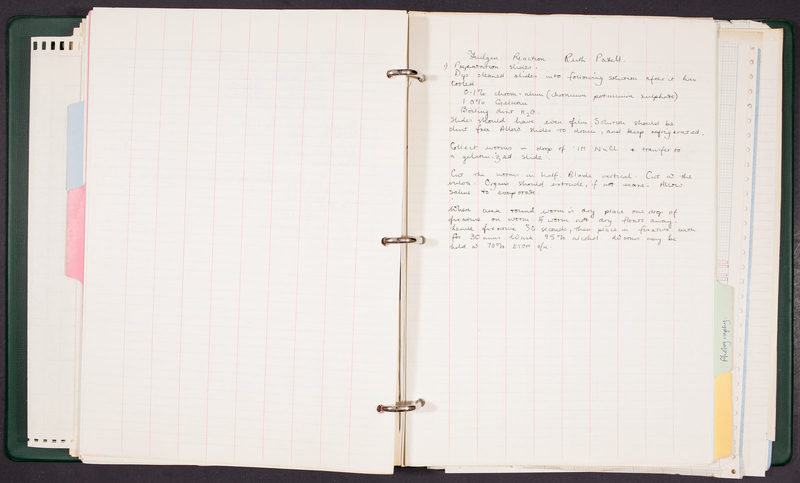 Fuelgen Reaction Ruth Patell.
1) Preparation slides.
Dip cleaned slides into following solution after it has
cooled
0.1% chrom-alum (chromium potassium sulphate)
1.0% Gelatin
Boiling dist H2O.
Slides should have even film. Solution should be
dust free. Allow slides to drain, and keep refrigerated.
Collect worms in drop of .1M NaCl & transfer to
a gelatin-ized slide.
Cut the worms in half. Blade vertical. Cut in the
Organs should extrude, if not Allow
saline to evaporate.
When area round worm is dry place one drop of
fixative on worm. If worm not dry floats away.
Leave fixative 30 seconds, then place in fixative bath
for 30 mins. Wash 95% alcohol. Worms may be
held in 70% ETOH o/n.
Photography